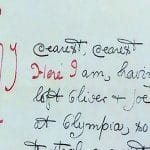 y dearest, dearest
Here I am, havin
left Oliver & Joe
at Olympia, so